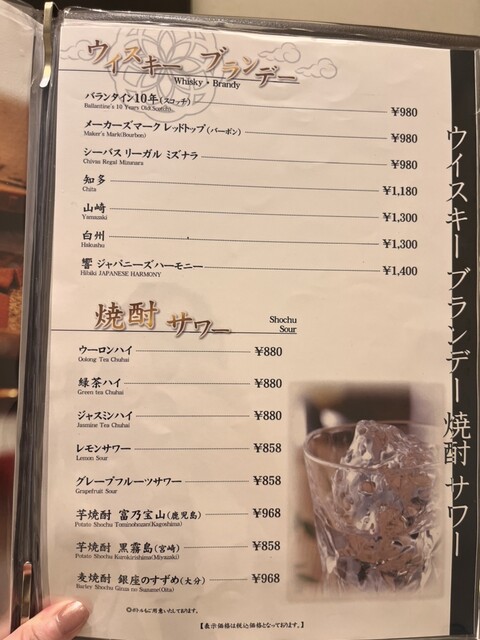 ウイスキー ブランデー
Whisky・Brandy
バランタイン10年(スコッチ) ¥980
Ballantine's 10 Years Old(Scotch)
メーカーズマーク レッドトップ(バーボン) ¥980
Maker's Mark(Bourbon)
シーバス リーガル ミズナラ ¥980
Chivas Regal Mizunara
知多 ¥1,180
Chita
山崎 ¥1,300
Yamazaki
白州 ¥1,300
Hakushu
響 ジャパニーズハーモニー ¥1,400
Hibiki JAPANESE HARMONY
焼酎 サワー
Shochu
Sour
ウーロンハイ ¥880
Oolong Tea Chuhai
緑茶ハイ ¥880
Green tea Chuhai
ジャスミンハイ ¥880
Jasmine Tea Chuhai
レモンサワー ¥858
Lemon Sour
グレープフルーツサワー ¥858
Grapefruit Sour
芋焼酎 富乃宝山(鹿児島) ¥968
Potato Shochu Tominohouzan(Kagoshima)
芋焼酎 黒霧島(宮崎) ¥858
Potato Shochu Kurokirishima(Miyazaki)
麦焼酎 銀座のすずめ(大分) ¥968
Barley Shochu Ginza no Suzume(Oita)
◎ボトルもご用意いたしております。
【表示価格は税込価格となっております。】
ウイスキー ブランデー 焼酎 サワー